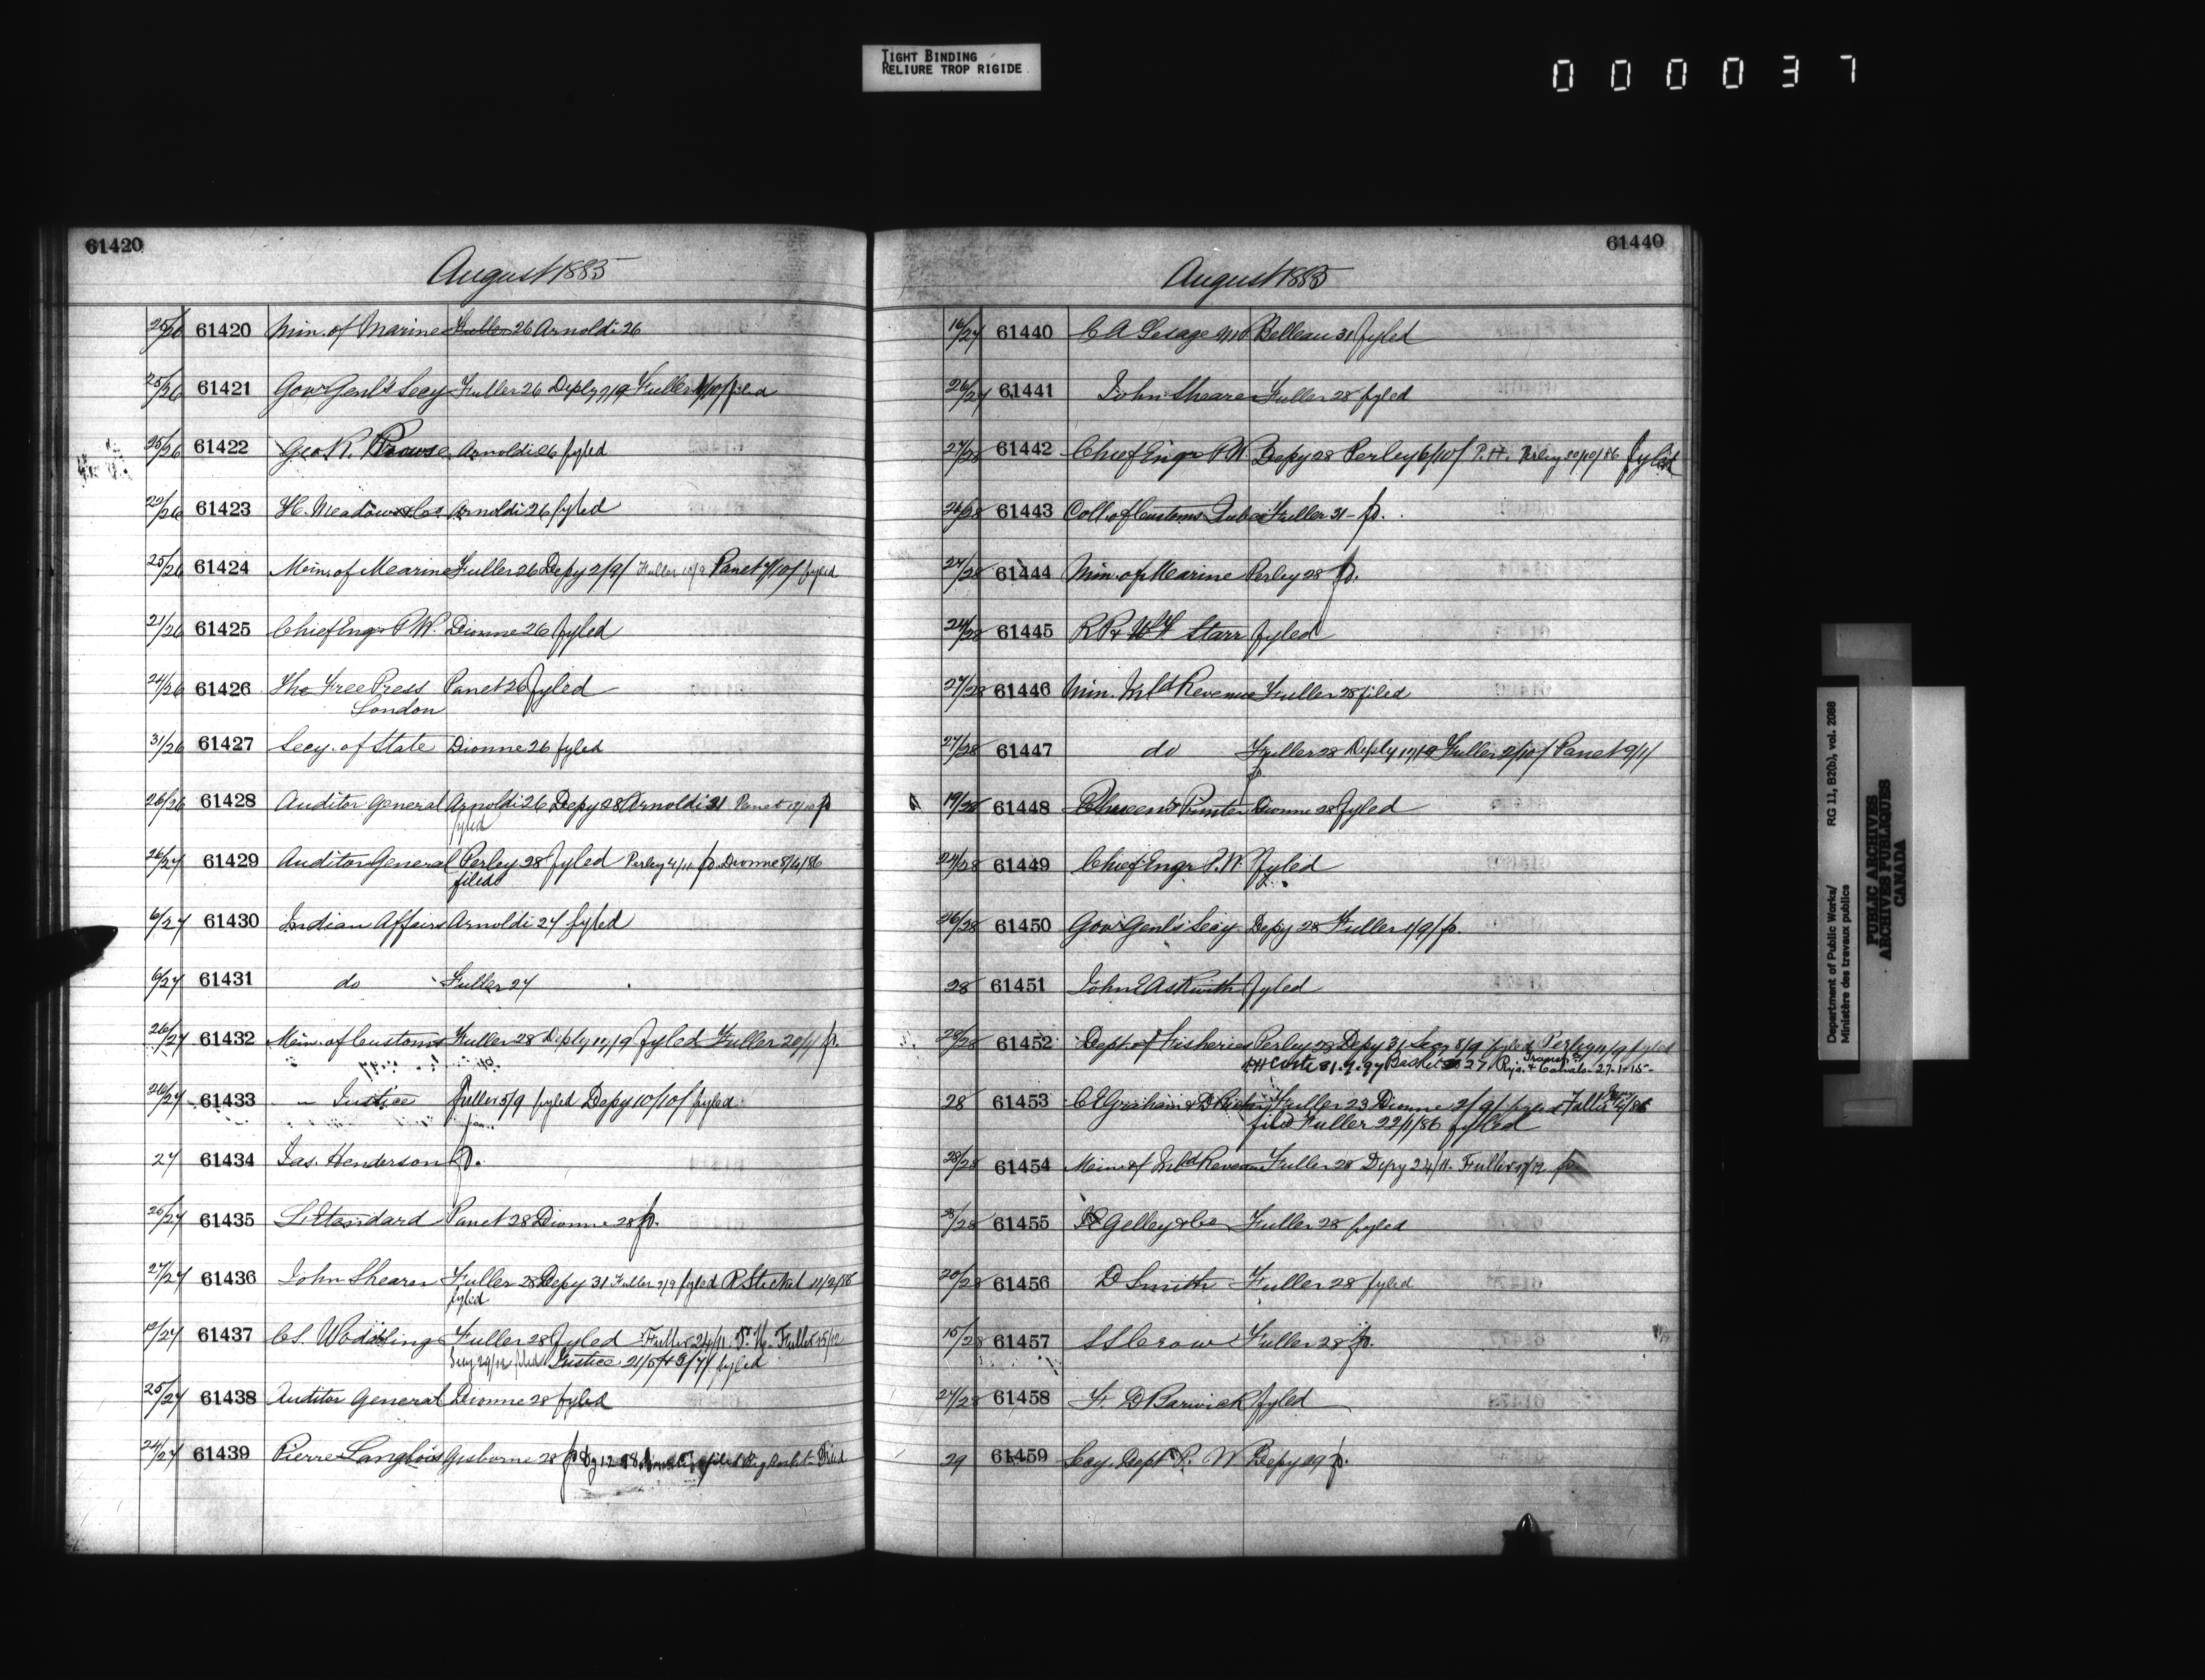 TIGHT BINDING
RELIURE TROP RIGIDE
000037
61420
August 1885
25/26 61420 Min. of Marine Fuller 26 Arnoldi 26
25/26 61421 Govr Genl's Secy Fuller 26 Deply 7/9 Fuller filed
25/26 61422 Geo R. Prowse Arnoldi 26 fyled
22/26 61423 H. Meadows & Co Arnoldi 26 fyled
25/26 61424 Min. of Marine Fuller 26 Depy 2/9/ Fuller 10/9 Panet 7/10/ fyled
21/26 61425 Chief Engr P.W. Dionne 26 fyled
24/26 61426 The Free Press Panet 26 fyled
London
31/26 61427 Secy. of State Dionne 26 fyled
26/26 61428 Auditor General Arnoldi 26 Depy 28 Arnoldi 31 Panet p
fyled
26/27 61429 Auditor General Perley 28 fyled Perley 4/11 p. Dionne 8/4/86
filed
6/27 61430 Indian Affairs Arnoldi 27 fyled
6/27 61431 do Fuller 27
26/27 61432 Min. of Customs Fuller 28 Deply 10/9 fyled Fuller 20/1/ p.
26/27 61433 " Justice Fuller 5/9 fyled Depy 10/10/ fyled
27 61434 Jas. Henderson p.
26/27 61435 L'Etandard Panet 28 Dionne 28 p.
27/27 61436 John Shearer Fuller 28 Depy 31 Fuller 7/9 fyled R Steckel 11/2/86
fyled
12/27 61437 Cs. Fuller 28 fyled Fuller 24/11. P. W. Fuller 15/12
Secy 29/12 filed Justice fyled
25/27 61438 Auditor General Dionne 28 fyled
24/27 61439 Pierre Langlois Gisborne 28
61440
August 1885
16/27 61440 C A Lesage MD Belleau 31 fyled
26/27 61441 John Shearer Fuller 28 fyled
27/28 61442 Chief Engr P.W. Depy 28 Perley 6/10/ P.H. Perley 20/10/86 fyled
26/28 61443 Coll. of Customs Quebec Fuller 31 - p.
27/28 61444 Min. of Marine Perley 28 p.
24/28 61445 R P & W F Starr fyled
27/28 61446 Min. Inld Revenue Fuller 28 filed
27/28 61447 do Fuller 28 Deply 17/9 Fuller 2/10/ Panet 9/1/
p
19/28 61448 Queen's Printer Dionne 28 fyled
24/28 61449 Chief Engr P.W. fyled
26/28 61450 Govr Genl's Secy. Depy 28 Fuller 1/9/ p.
28 61451 John E Askwith fyled
28/28 61452 Dept. of Fisheries Perley 28 Depy 31 Secy 8/9 fyled Perley 11/9 fyled
Transf to
Rys. & Canals 27-1-15-
28 61453 C E Graham & D Fuller 23 Dionne 2/9/ fyled Fuller
filed Fuller 22/1/86 fyled
28/28 61454 Min. of Inld Revenue Fuller 28 Depy 24/11. Fuller p.
28/28 61455 Gelley & Co Fuller 28 fyled
20/28 61456 D Smith Fuller 28 fyled
15/28 61457 S S Crow Fuller 28 p.
27/28 61458 F. D Barwick fyled
29 61459 Secy. Dept P. W. Depy 29 p.
Department of Public Works/ RG 11, B2(b), vol. 2088
Ministère des travaux publics
PUBLIC ARCHIVES
ARCHIVES PUBLIQUES
CANADA